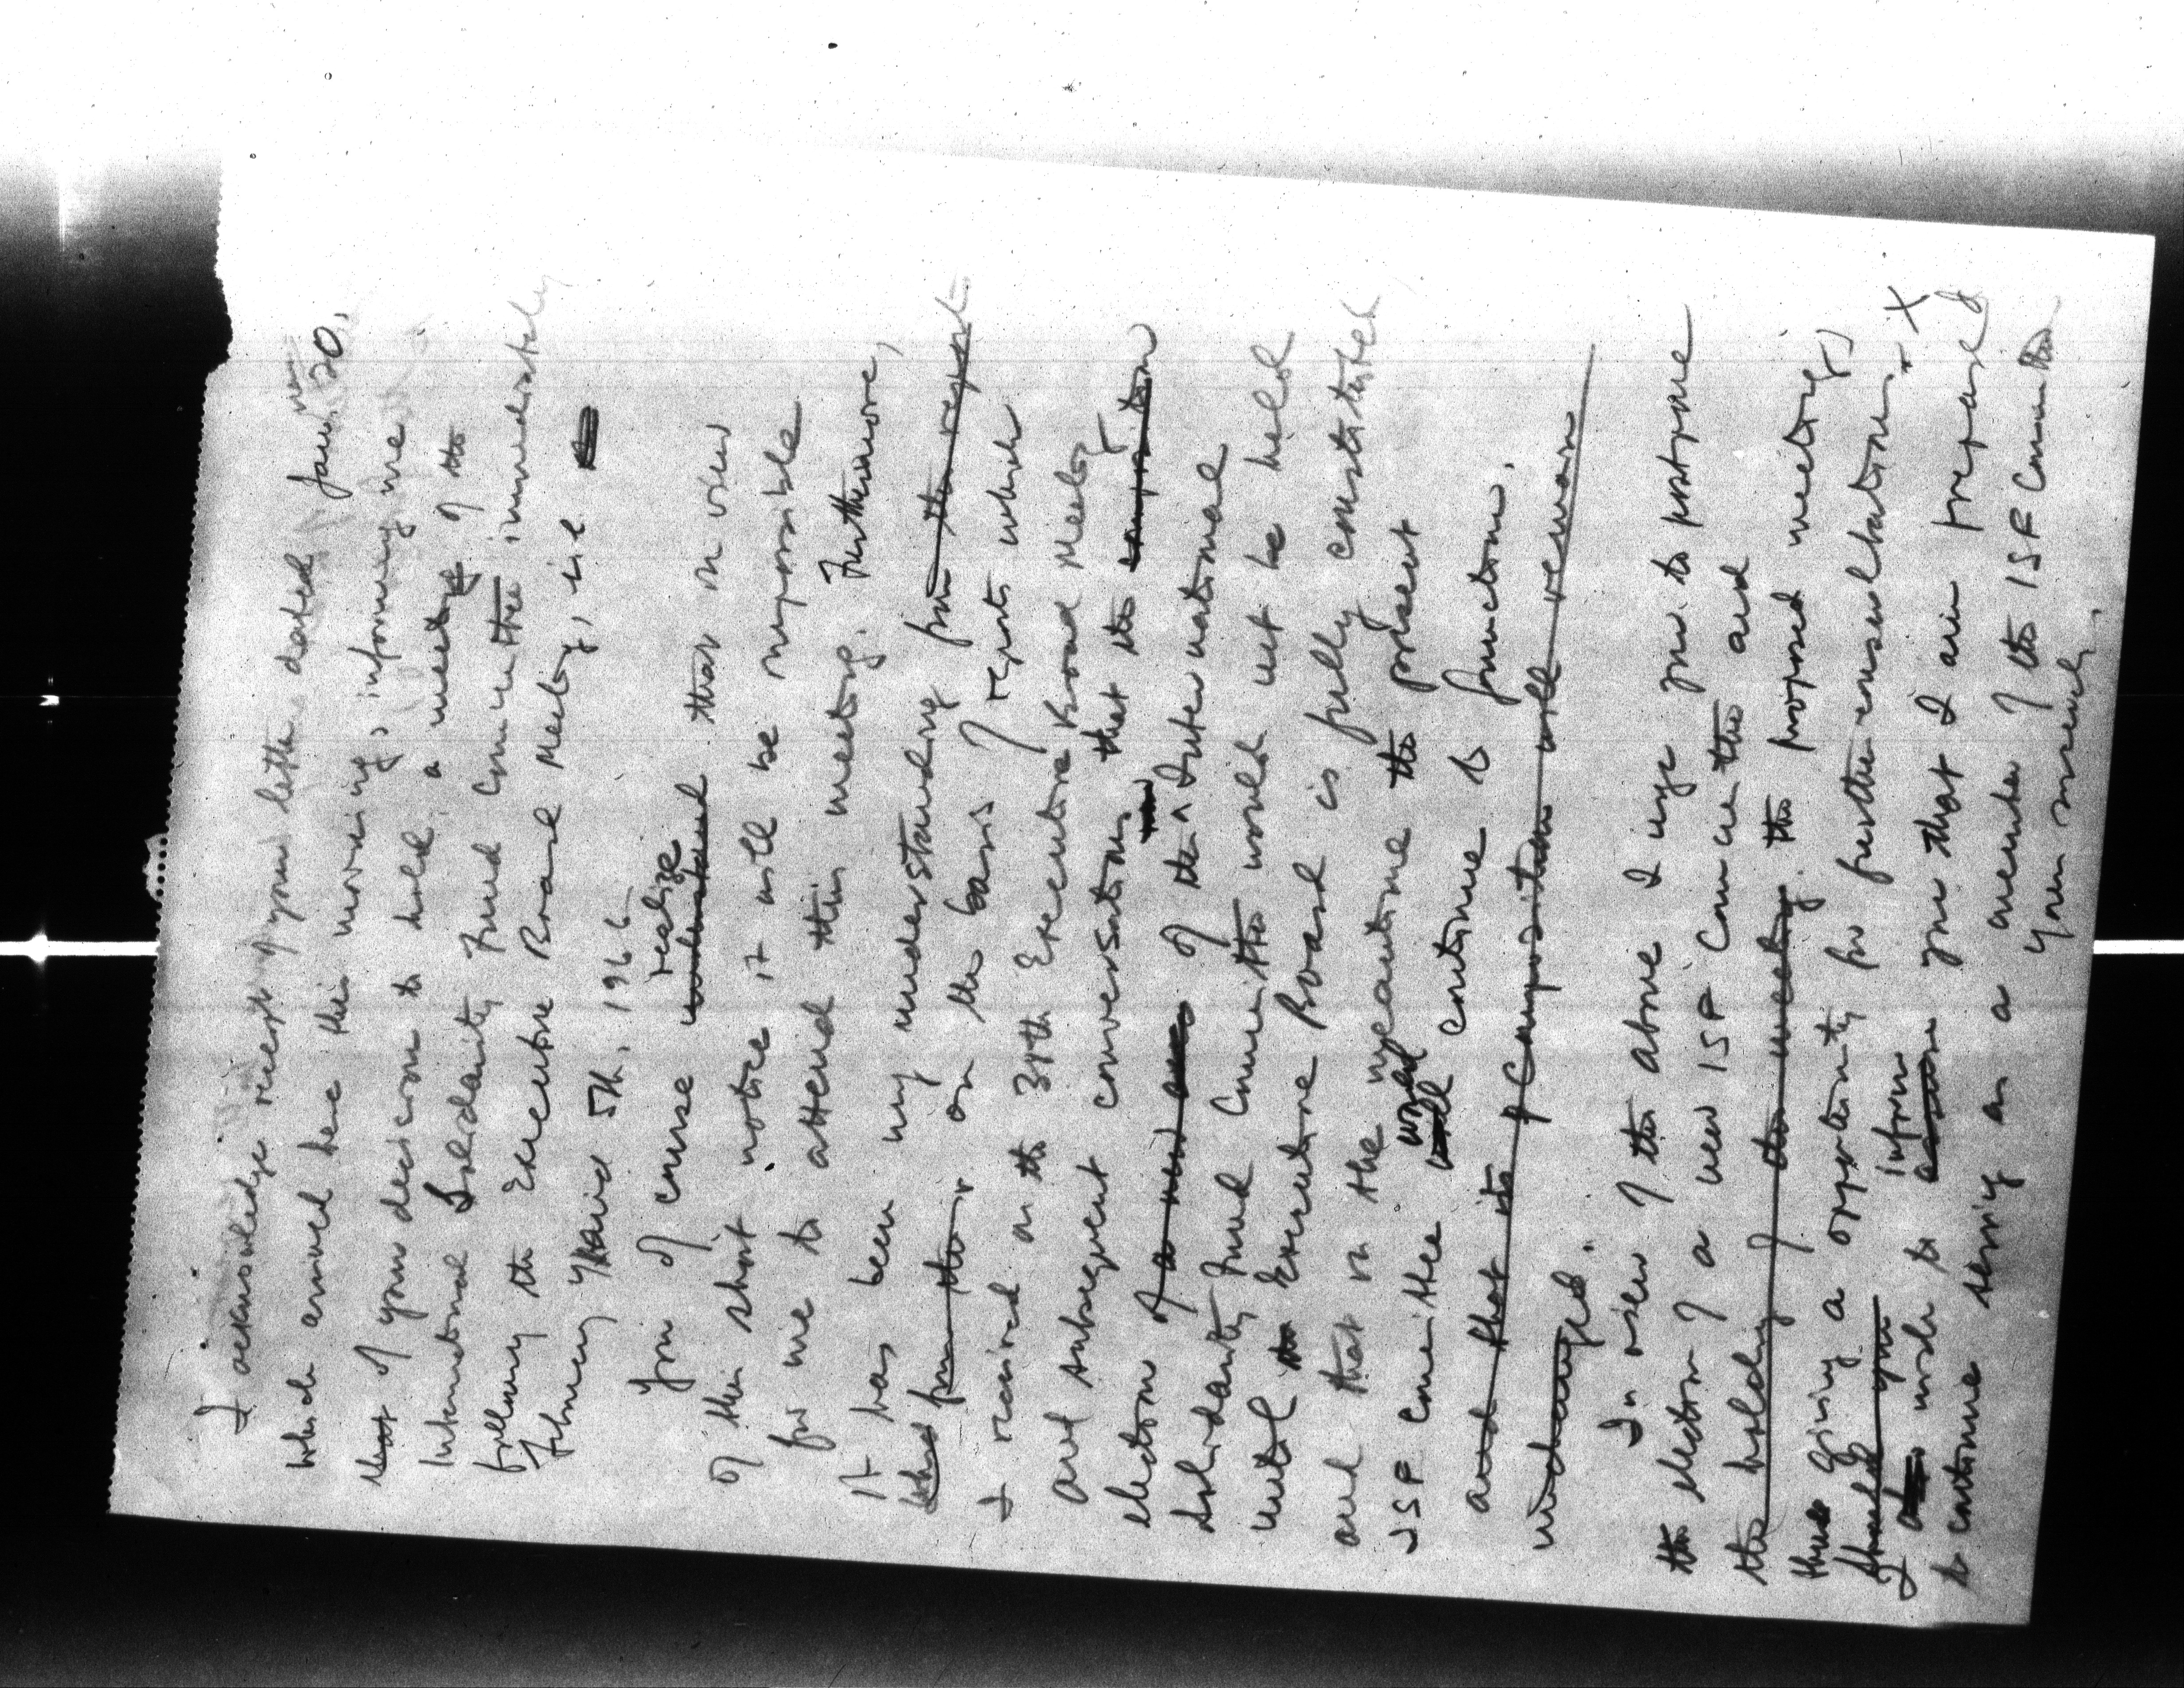 I acknowledge receipt of your letter dated Jan. 20,
which arrived here this morning, informing me
that of your decision to hold a meeting of the
International Solidarity Fund Committee immediately
following the Executive Board Meeting, i.e.
February 5th, 1966.
realize
You of course understand that in view
of this short notice it will be impossible
for me to attend this meeting. Furthermore,
it has been my understanding from the report
from the on the basis of reports which
I received on the 38th Executive Board Meeting
and subsequent conversations that the composition
election of a new of the ^ International
Solidarity Fund Committee would not be held
until the Executive Board is fully constituted
and that in the meantime the present
would
ISF Committee will continue to function.
and that its composition will remain
unchanged.
In view of the above I urge you to postpone
the election of a new ISF Committee and
the holding of the meeting. the proposed meeting
thus giving a opportunity for further consultation. X
should you
inform
I wish to assure you that I am prepared
to continue serving as a member of the ISF Committee
Yours sincerely,